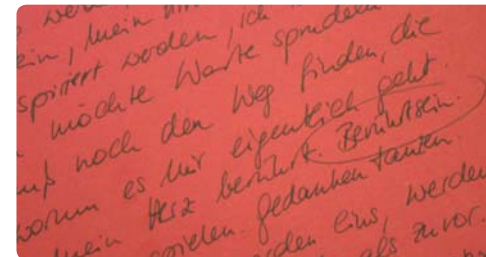 werd
ein, mein
spiriert werden, ich
möchte Worte sprudeln
muß noch den Weg finden, die
worum es mir eigentlich geht.
mein Herz berührt. Berührtsein.
spielen. Gedanken tanzen.
werden eins, werden
als zuvor.